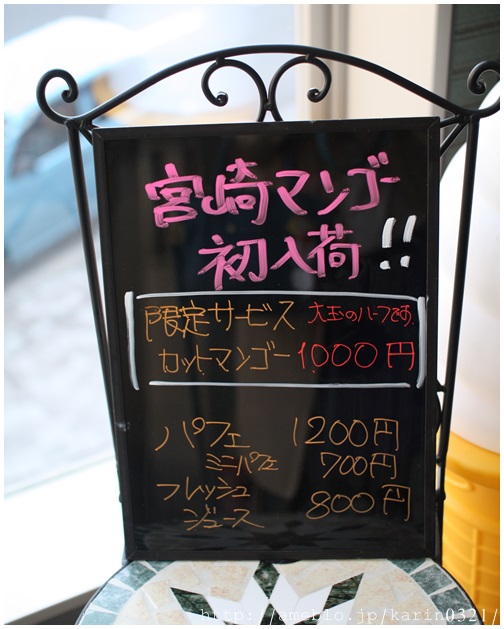 宮崎マンゴー
初入荷!!
限定サービス 大玉のハーフです
カットマンゴー 1000円
パフェ 1200円
ミニパフェ 700円
フレッシュ
ジュース 800円
http://ameblo.jp/karin0321/